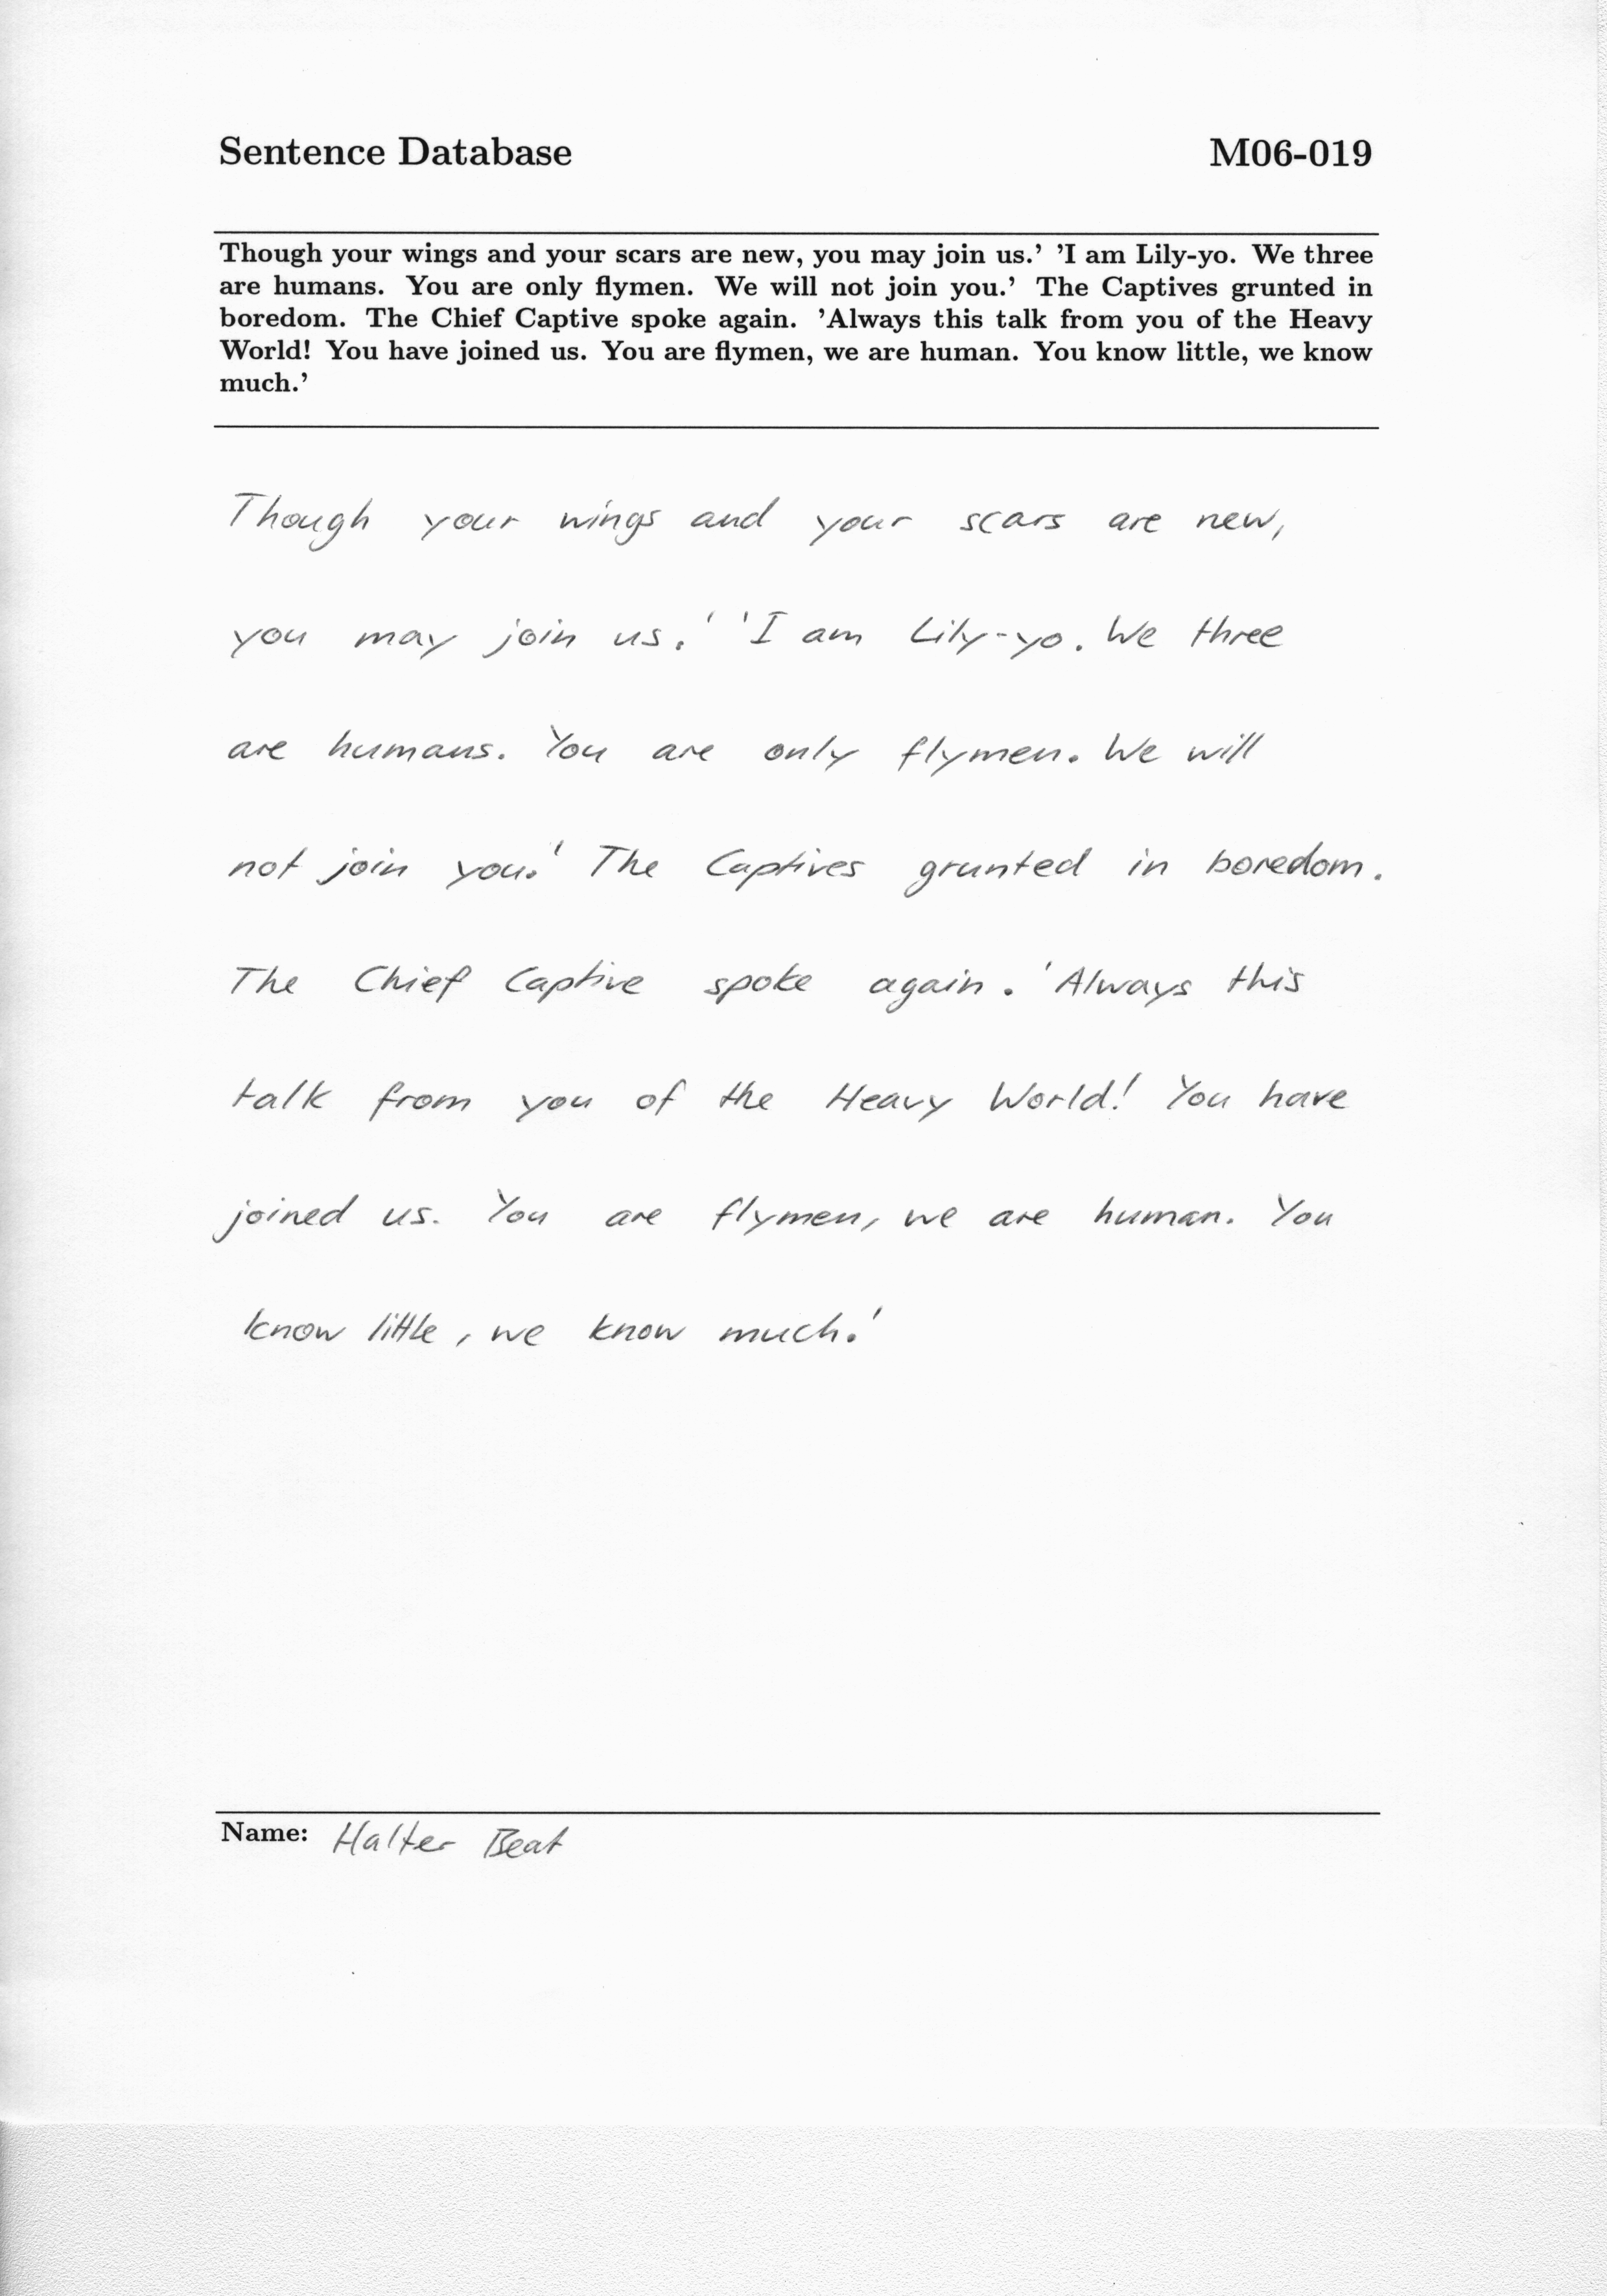 Sentence Database M06-019
Though your wings and your scars are new, you may join us.’ ’I am Lily-yo. We three
are humans. You are only flymen. We will not join you.’ The Captives grunted in
boredom. The Chief Captive spoke again. ’Always this talk from you of the Heavy
World! You have joined us. You are flymen, we are human. You know little, we know
much.’
Though your wings and your scars are new,
you may join us.' 'I am Lily-yo. We three
are humans. You are only flymen. We will
not join you.' The Captives grunted in boredom.
The Chief Captive spoke again. 'Always this
talk from you of the Heavy World! You have
joined us. You are flymen, we are human. You
know little, we know much.'
Name: Halter Beat